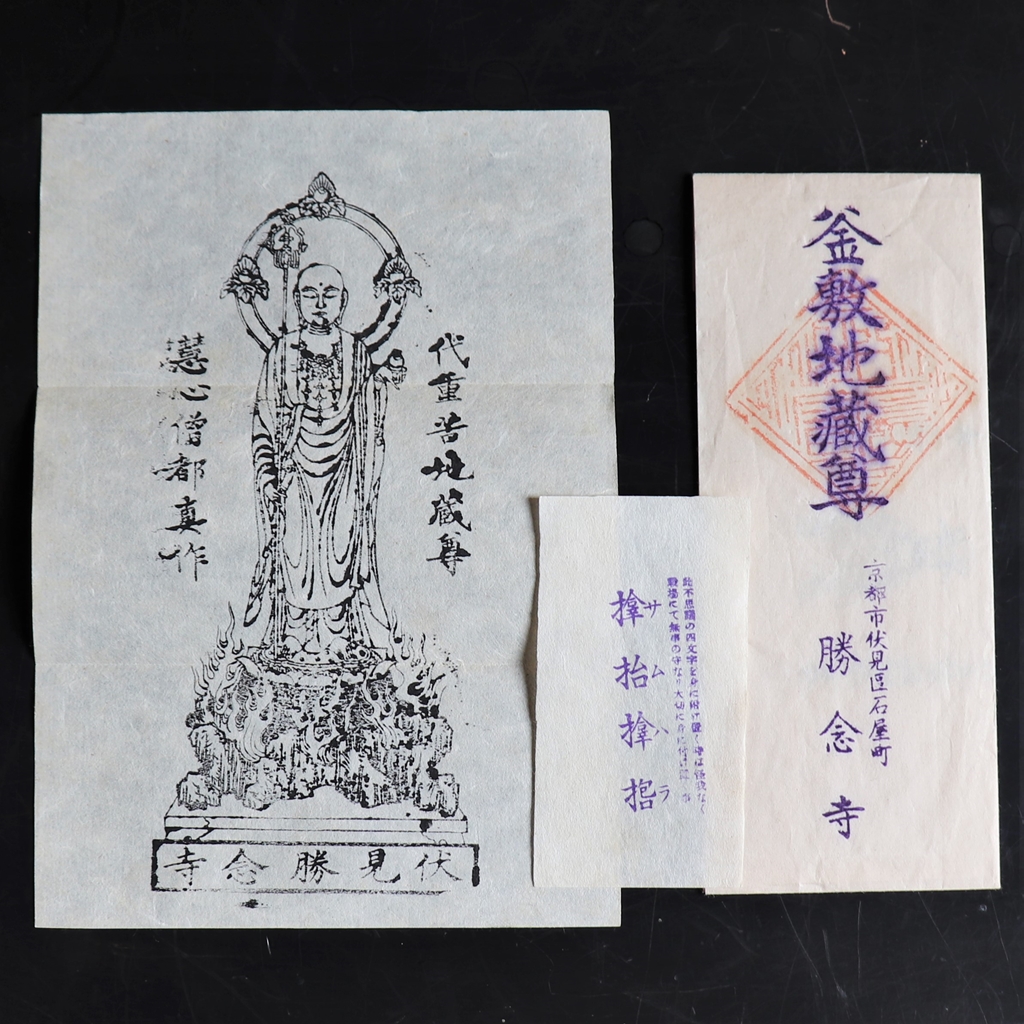 代重苦地蔵尊
慧心僧都真作
伏見勝念寺
此不思議の四文字を身に附け置く時は怪我なく
戰場にて無事の守なり大切に身に付け
サムハラ
釜敷地蔵尊
京都市伏見區石屋町
勝念寺